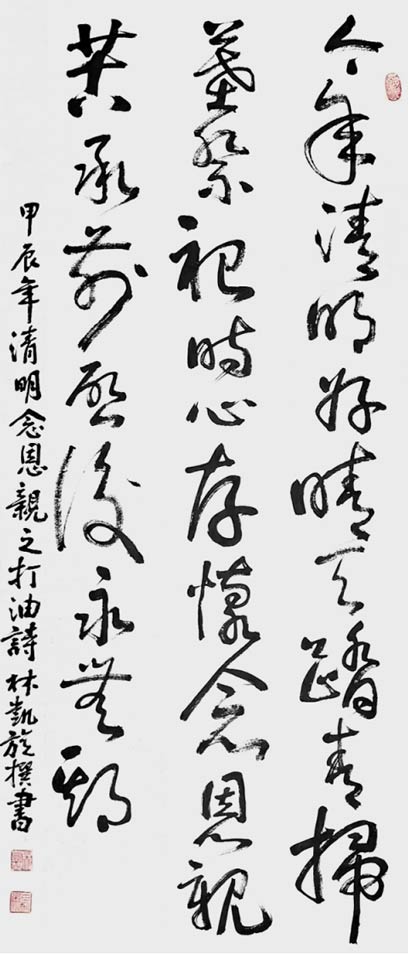 今年清明好晴天踏青掃
墓祭祀時心存懷念恩親
承前啟後永無
甲辰年清明念恩親之打油詩 林凱旋撰書